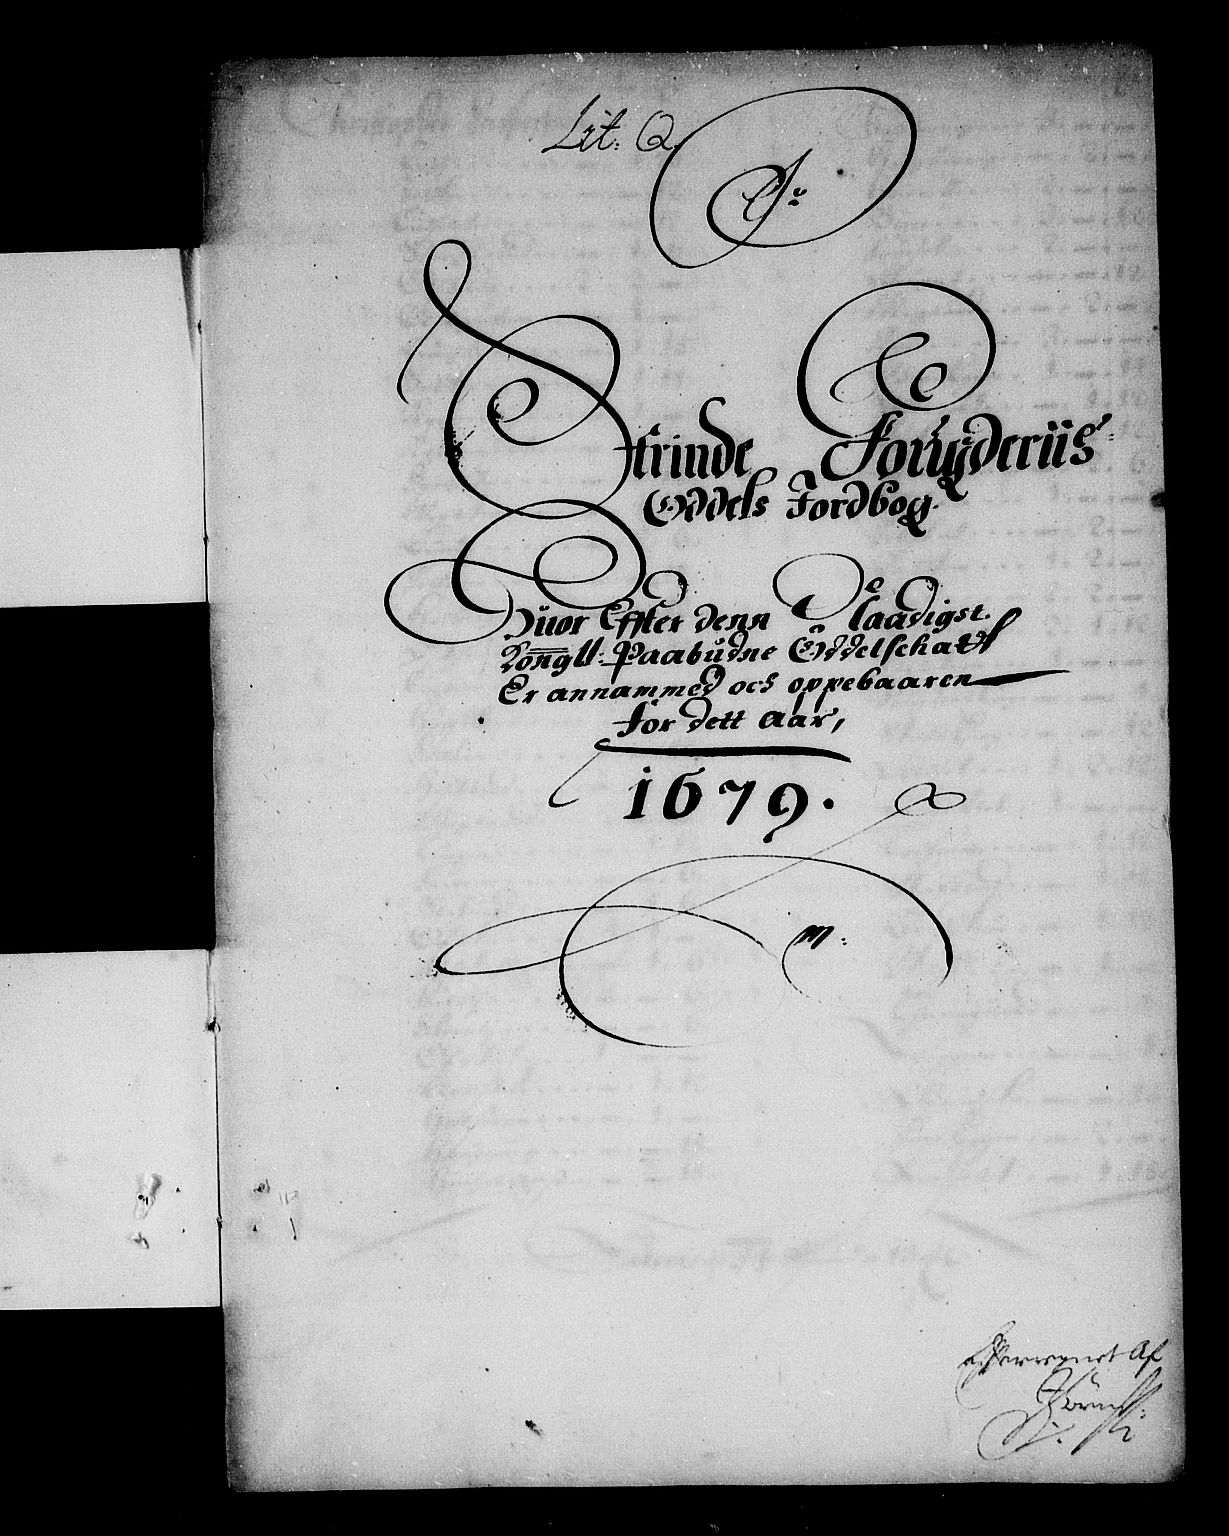 Lit: Q
Strinde Fougderiis
Oddels Jordbog.
Huor Effter denn Naadigst.
Kongll: Paabudne Oddelschatt
Er annammed och oppebaaren
for dett Aar,
1679.
m:
Efterregnet Af